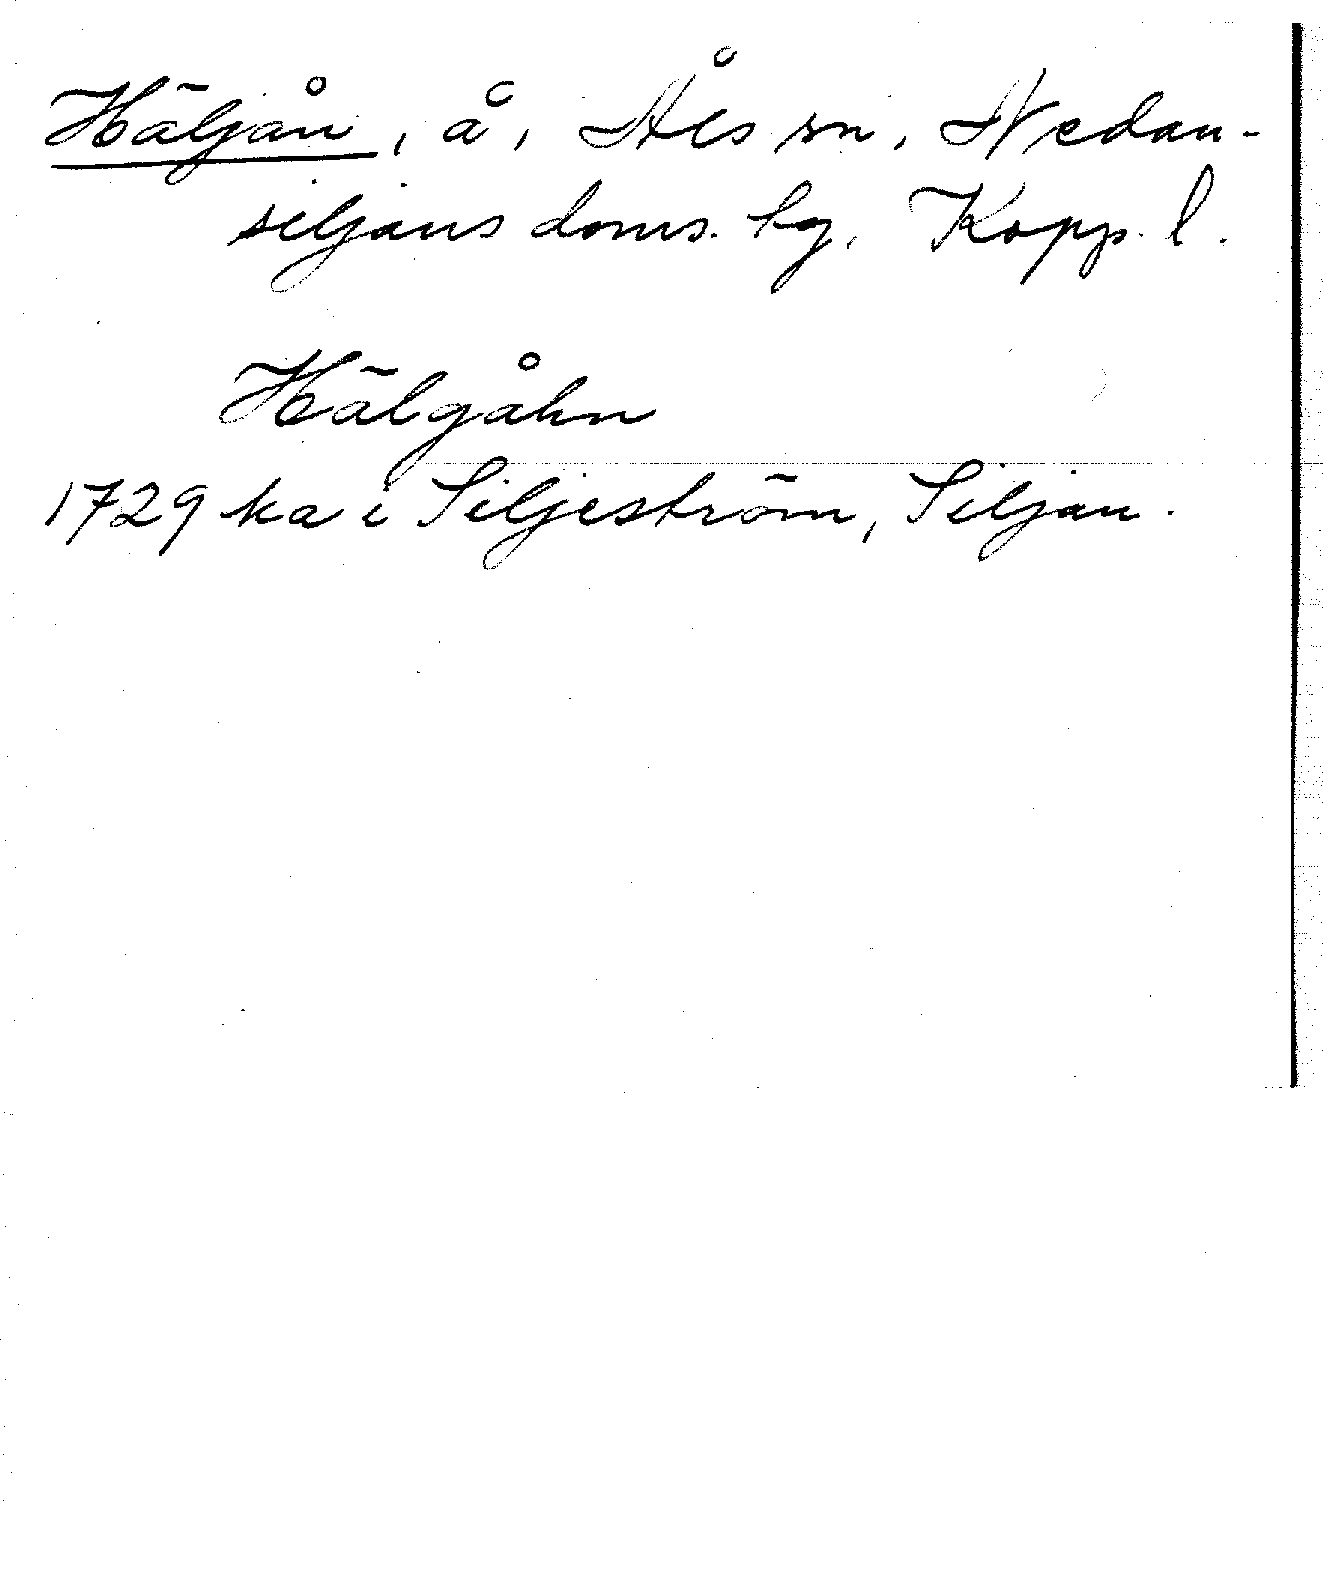 Häljån, å, Åls sn, Nedan-
siljans doms. hg, Kopp. l.
Hälgåhn
1729 ka i Siljeström, Siljan.